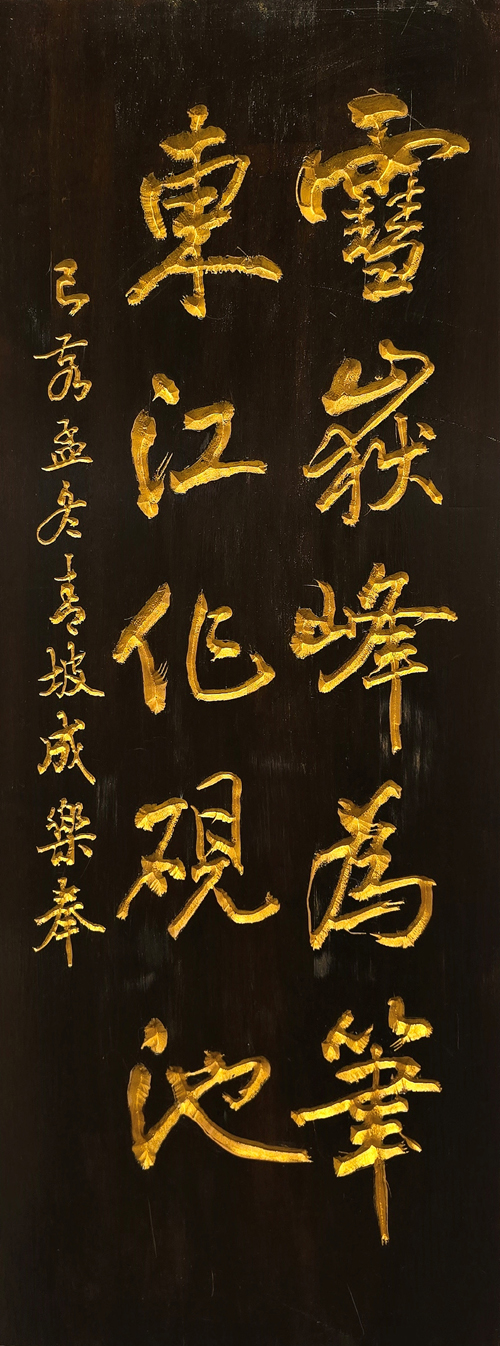 雪嶽峰為筆
東江化硯池
己亥孟冬青坡成樂奉